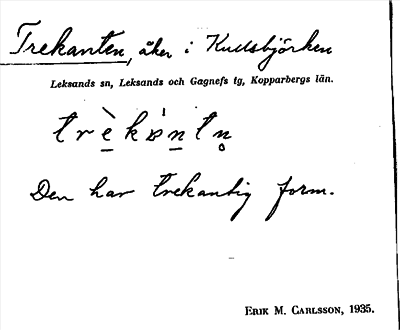 Trekanten, åker i Kullsbjörken
Leksands sn, Leksands och Gagnefs tg, Kopparbergs län.
Den har trekantig form.
Erik M. Carlsson, 1935.